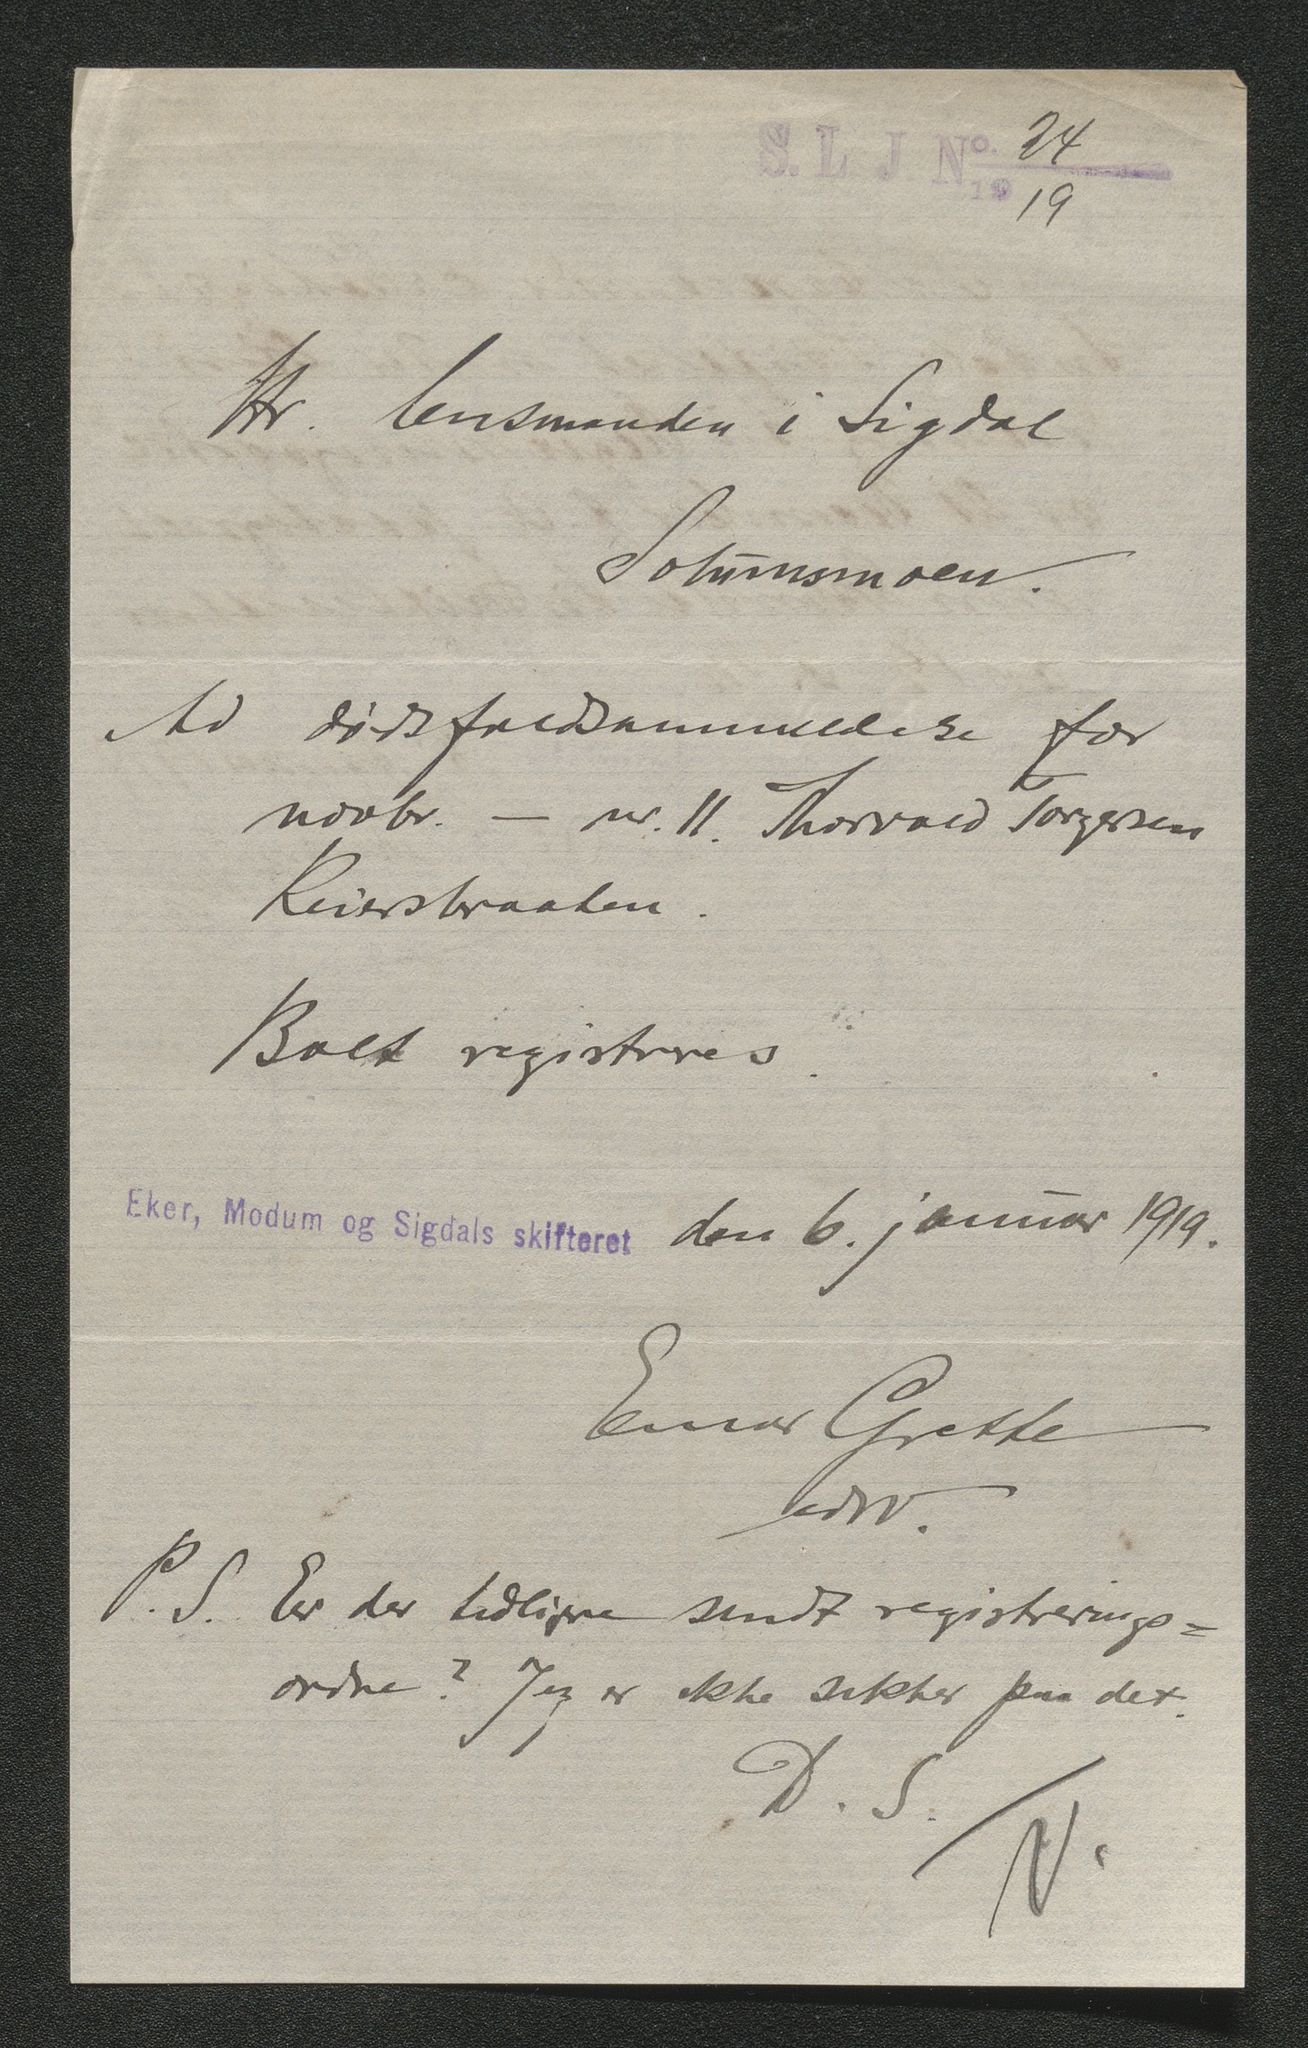 S. L J No. 24
19 19
Hr. lensmanden i Sigdal
Solumsmoen.
Ad dødsfaldsanmeldelse for
novbr. — nr. 11. Thorvald Torgersen
Reiersbraaten.
Boet registreres.
Eker, Modum og Sigdals skifteret den 6. januar 1919.
Einar Grette
edsv.
P.S. Er der tidligere sendt registrerings=
ordre? Jeg er ikke sikker paa det.
D. S.